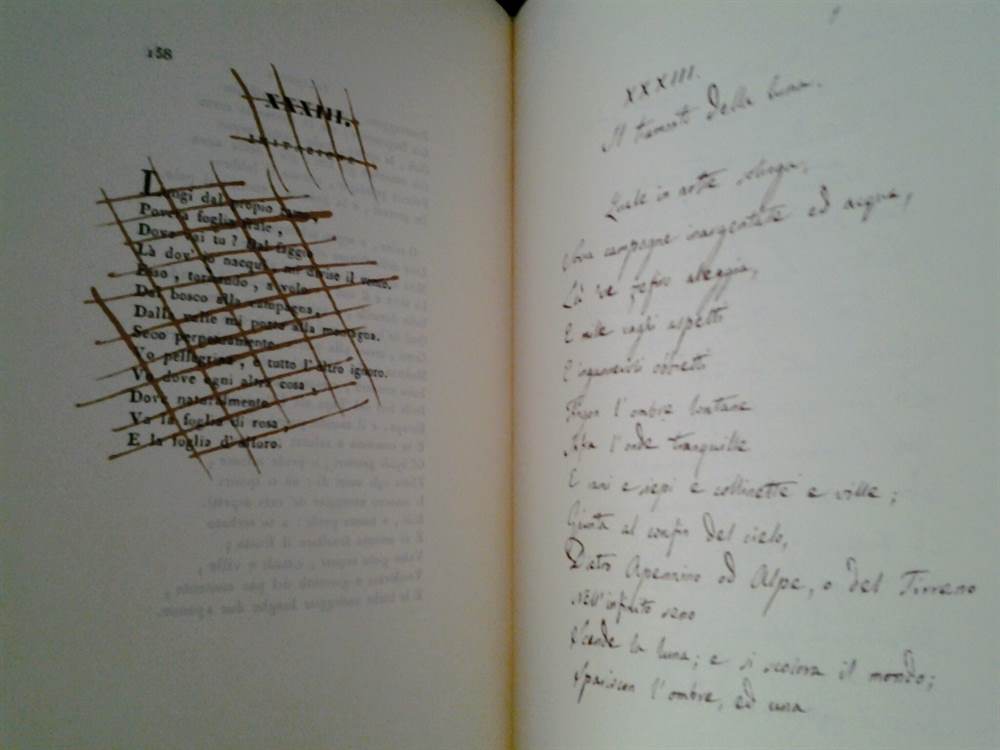 158
XXXIII.
Imitazione
Lungi dal propio ramo,
Povera foglia frale,
Dove vai tu? Dal faggio
Là dov' io nacqui, mi divise il vento.
Esso, tornando, a volo
Dal bosco alla campagna,
Dalla valle mi porta alla montagna.
Seco perpetuamente
Vo pellegrina, e tutto l'altro ignoro.
Vo dove ogni altra cosa,
Dove naturalmente
Va la foglia di rosa,
E la foglia d'alloro.
XXXIII.
Il tramonto della luna.
Quale in notte solinga,
Sovra campagne inargentate ed acque,
Là 've zefiro aleggia,
E mille vaghi aspetti
E ingannevoli obbietti
Fingon l'ombre lontane
Infra l'onde tranquille
E rami e siepi e collinette e ville;
Giunta al confin del cielo,
Dietro Apennino od Alpe, o del Tirreno
Nell'infinito seno
Scende la luna; e si scolora il mondo;
Spariscon l'ombre, ed una